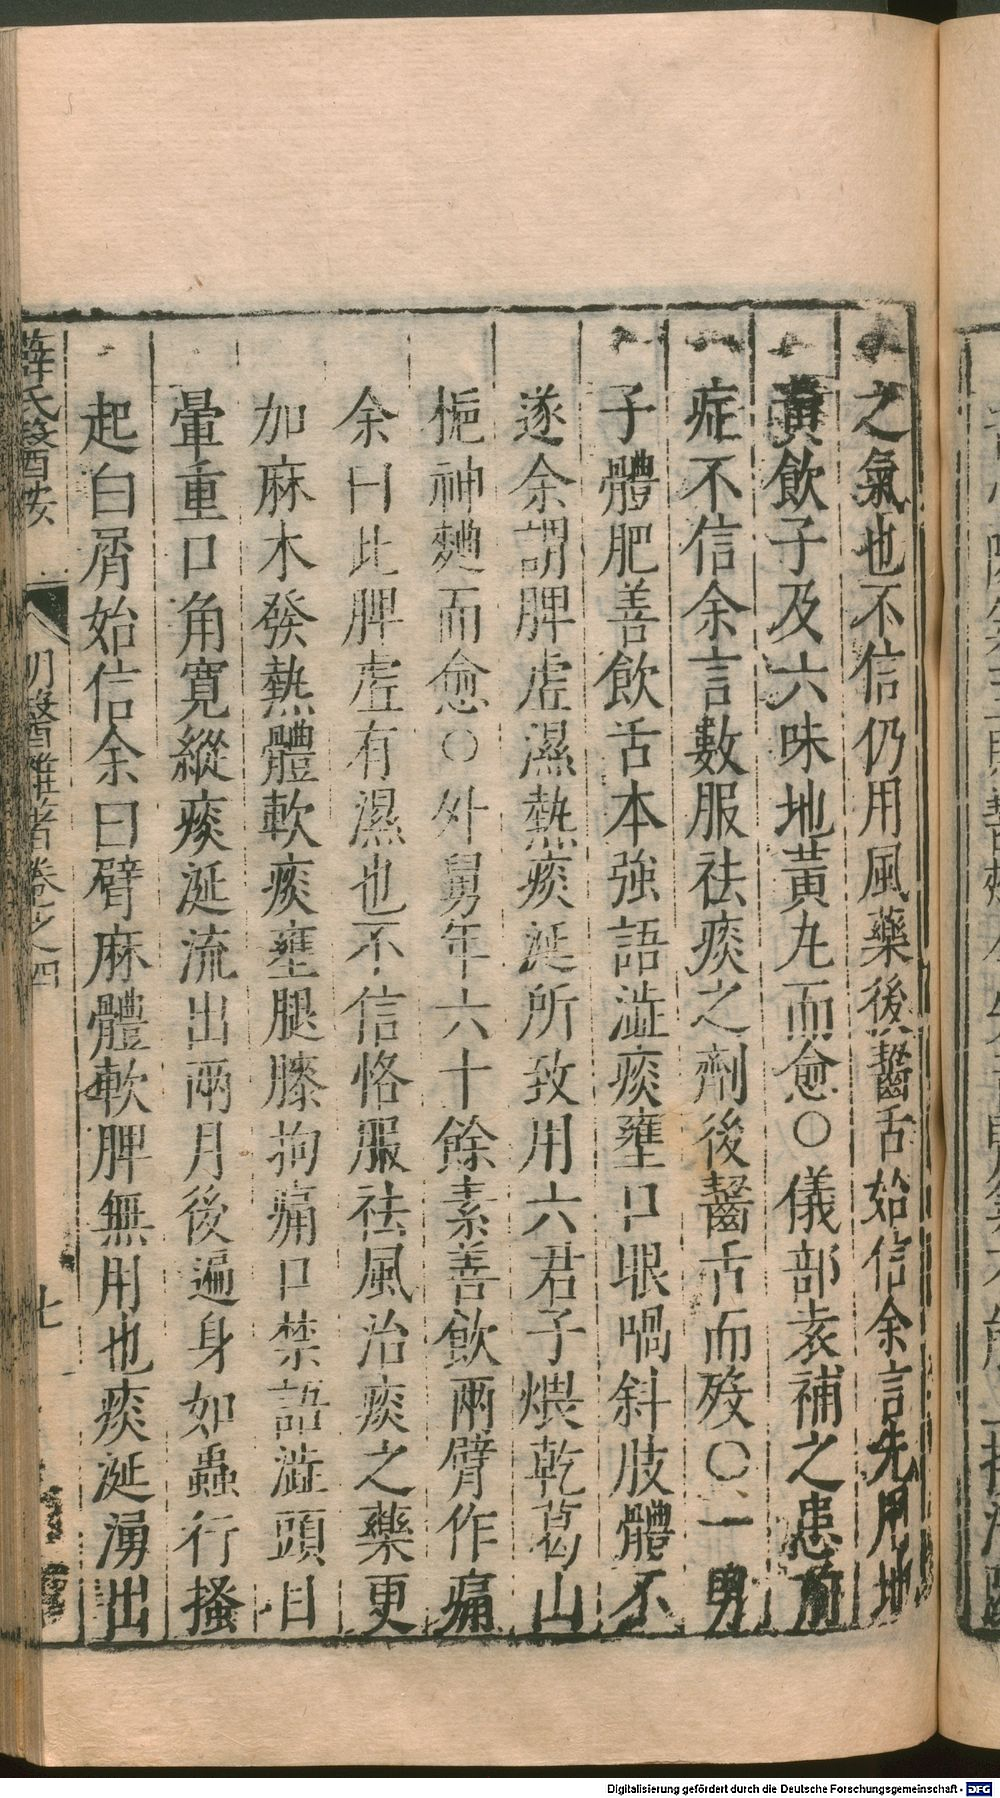 之氣也不信仍用風藥後齧舌始信余言先用地
黃飲子及六味地黃丸而愈○儀部袁補之患前
症不信余言數服祛痰之劑後齧舌而歿○一男
子體肥善飲舌本強語澁痰壅口眼喎斜肢體不
遂余謂脾虛濕熱痰涎所致用六君子煨乾葛山
梔神麯而愈○外舅年六十餘素善飲兩臂作痛
余曰此脾虛有濕也不信恪服祛風治痰之藥更
加麻木發熱體軟痰壅腿膝拘痛口禁語澁頭目
暈重口角寬縱痰涎流出兩月後遍身如蟲行搔
起白屑始信余曰臂麻體軟脾無用也痰涎湧出
薛氏醫按 明醫雜著卷之四 七
Digitalisierung gefördert durch die Deutsche Forschungsgemeinschaft - DFG